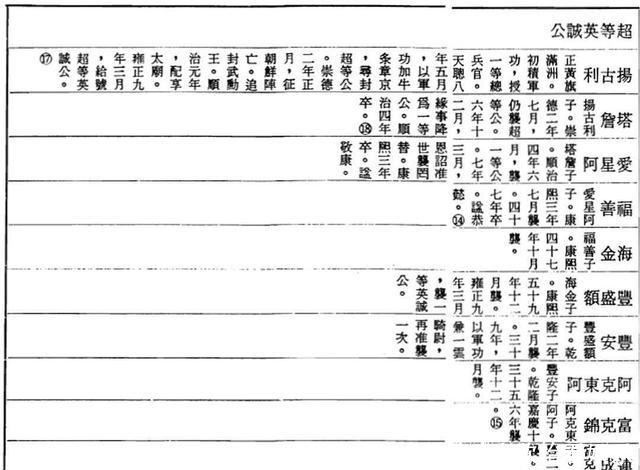 超等英誠公
揚古利
正黃旗滿洲。初積軍功,授一等總兵官。天聰八年五月,以軍功加牛条章京,尋封超等公。崇德二年正月,征朝鮮陣亡。追封武勳王。順治元年,配享太廟。雍正九年三月,給號超等英誠公。⑰
塔詹
揚古利子。崇德二年七月,仍襲超等公。六年十二月,緣事降爲一等公。順治四年卒。⑱
愛星阿
塔詹子。順治四年六月,襲一等公。七年三月,恩詔准世襲罔替。康熙三年卒。諡敬康。
福善
愛星阿子。康熙三年七月襲。四十七年卒。諡恭愨。⑭
海金
福善子。康熙四十七年十月襲。
豐盛額
海金子。康熙五十九年十二月襲。雍正九年三月,襲一等英誠公。
豐安
豐盛額子。乾隆二年二月襲。三十九年,以軍功兼一雲騎尉,再准襲一次。
阿克東阿
豐安子。乾隆三十五年十二月襲。
富克錦
阿克東阿子。嘉慶十六年襲。⑮
連成